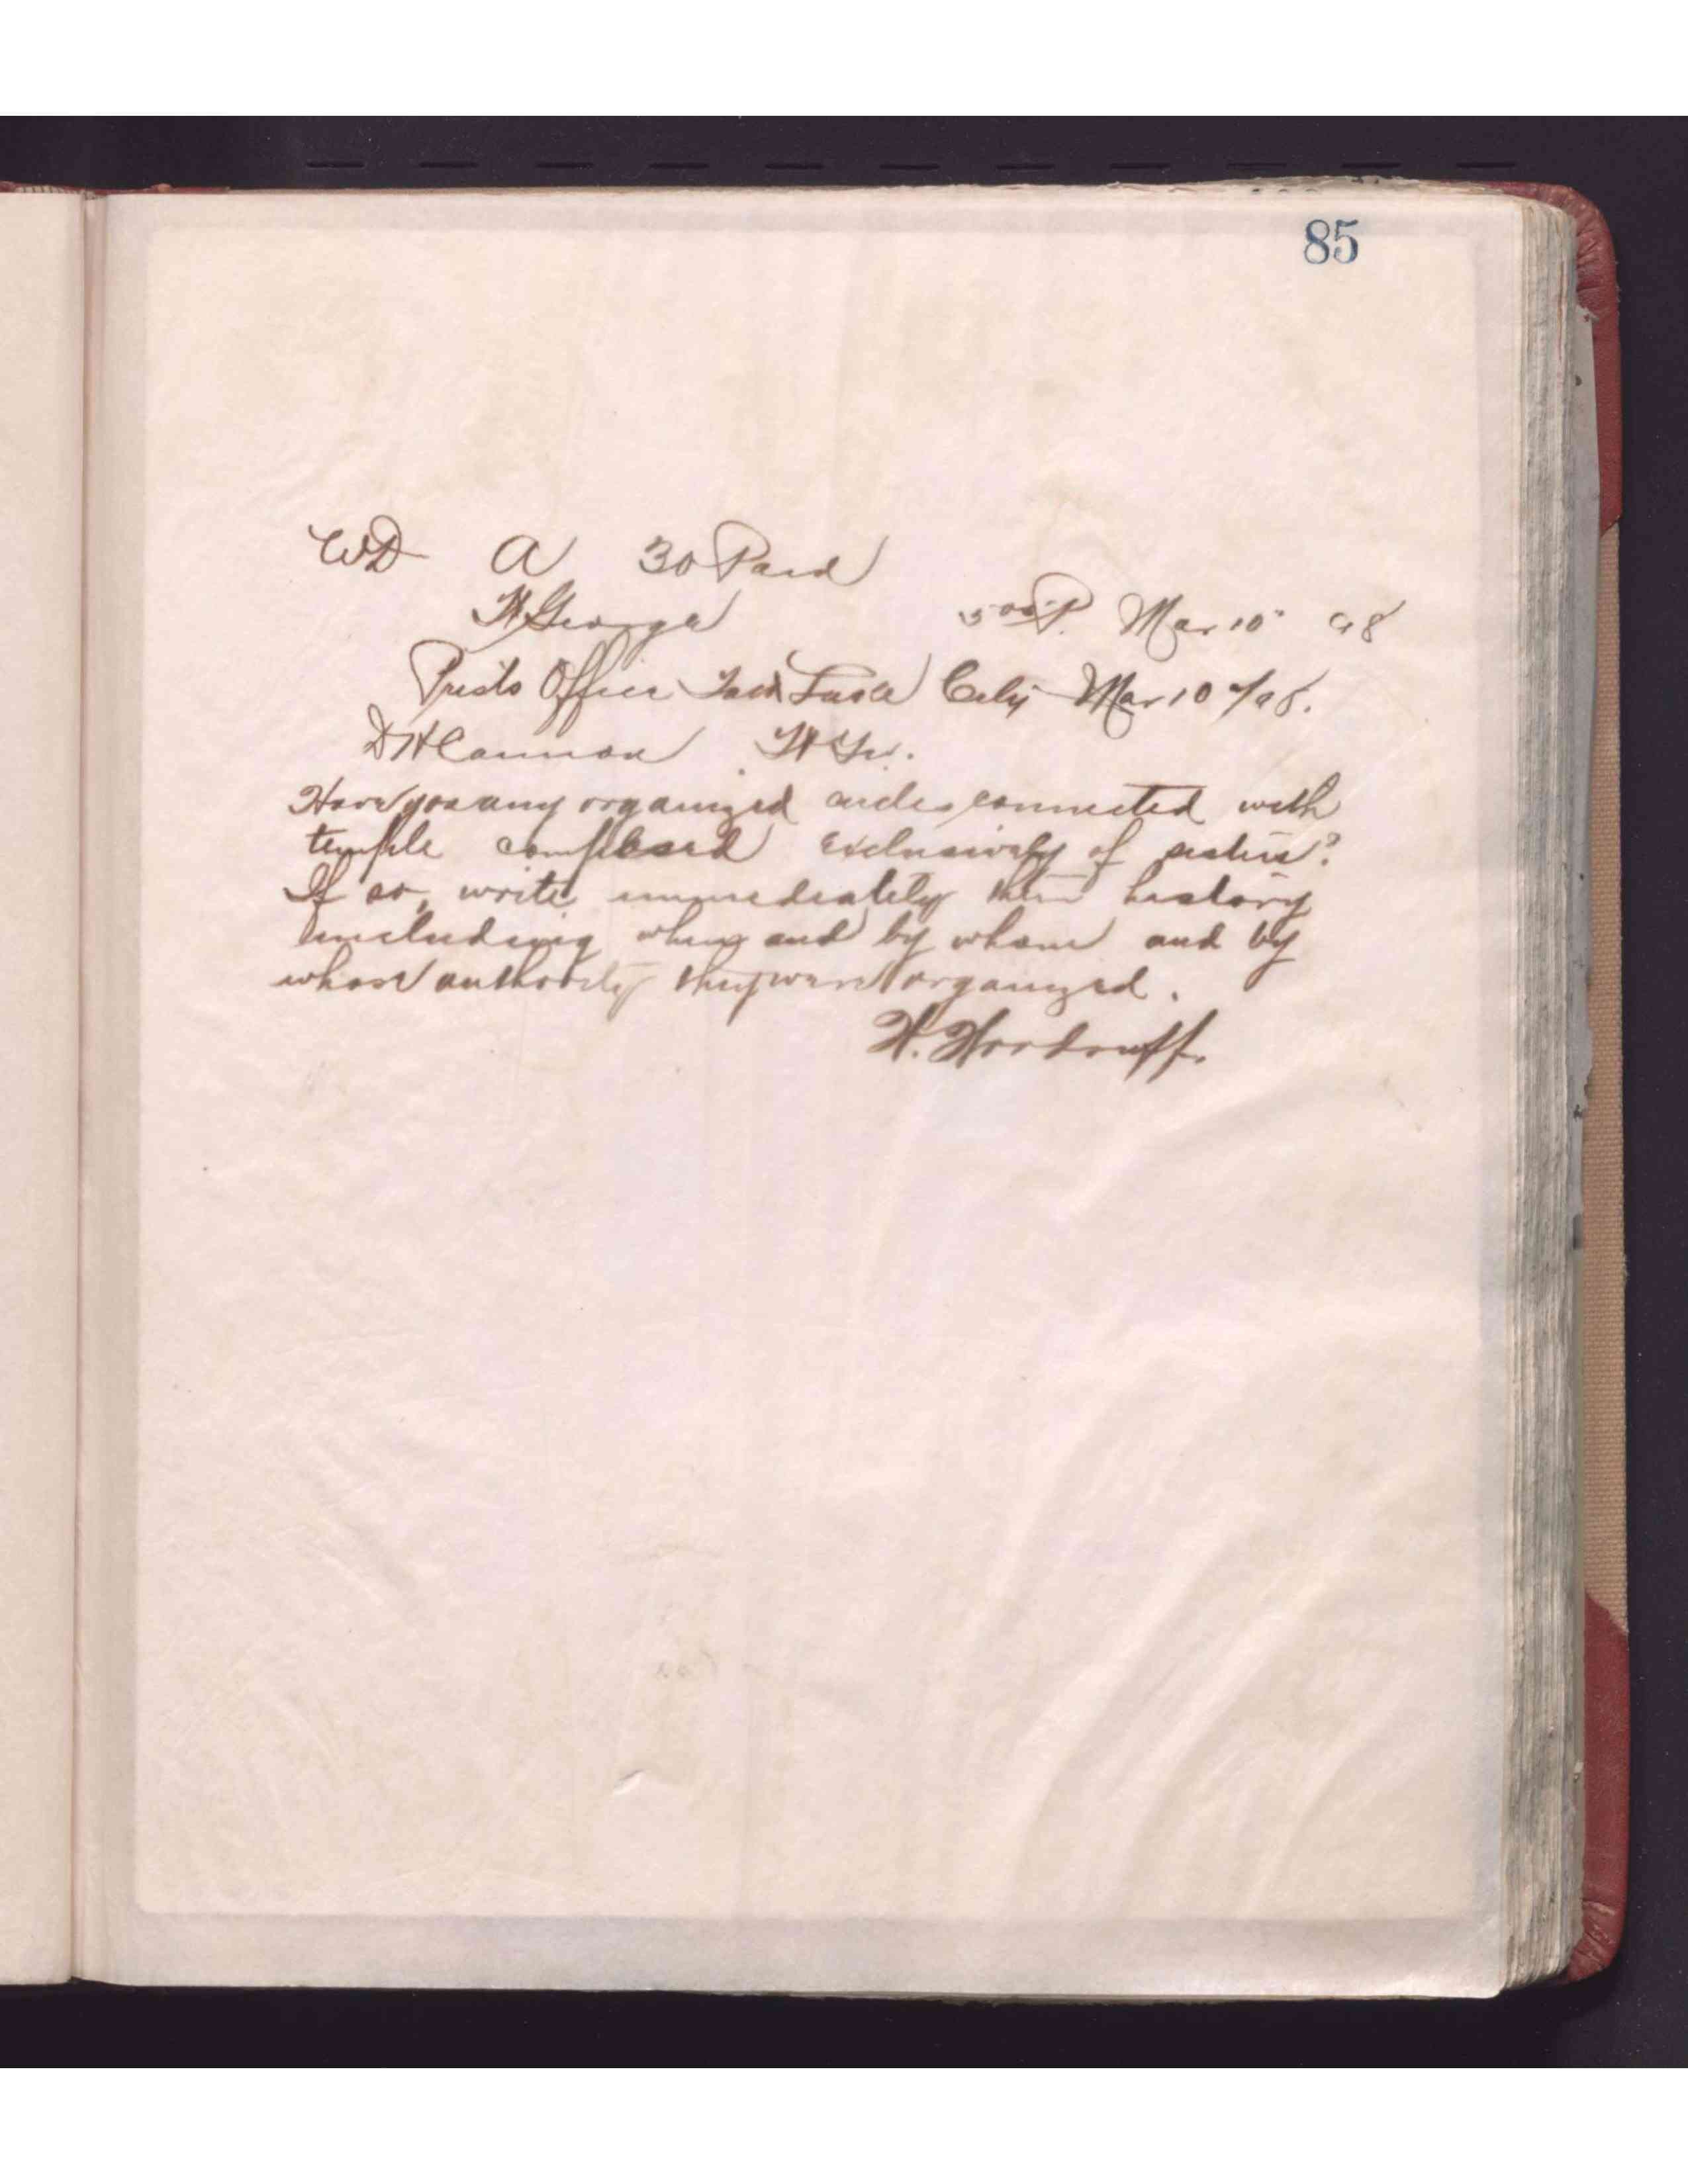 85
WD A 30 Paid
St George 5 00 P. Mar 10 98
Prests Office Salt Lake City Mar 10 /98.
D H Cannon St Ge.
Have you any organized circles connected with
temple composed exclusively of sisters?
If so, write immediately their history
including when and by whom and by
whose authority they were organized.
W. Woodruff.